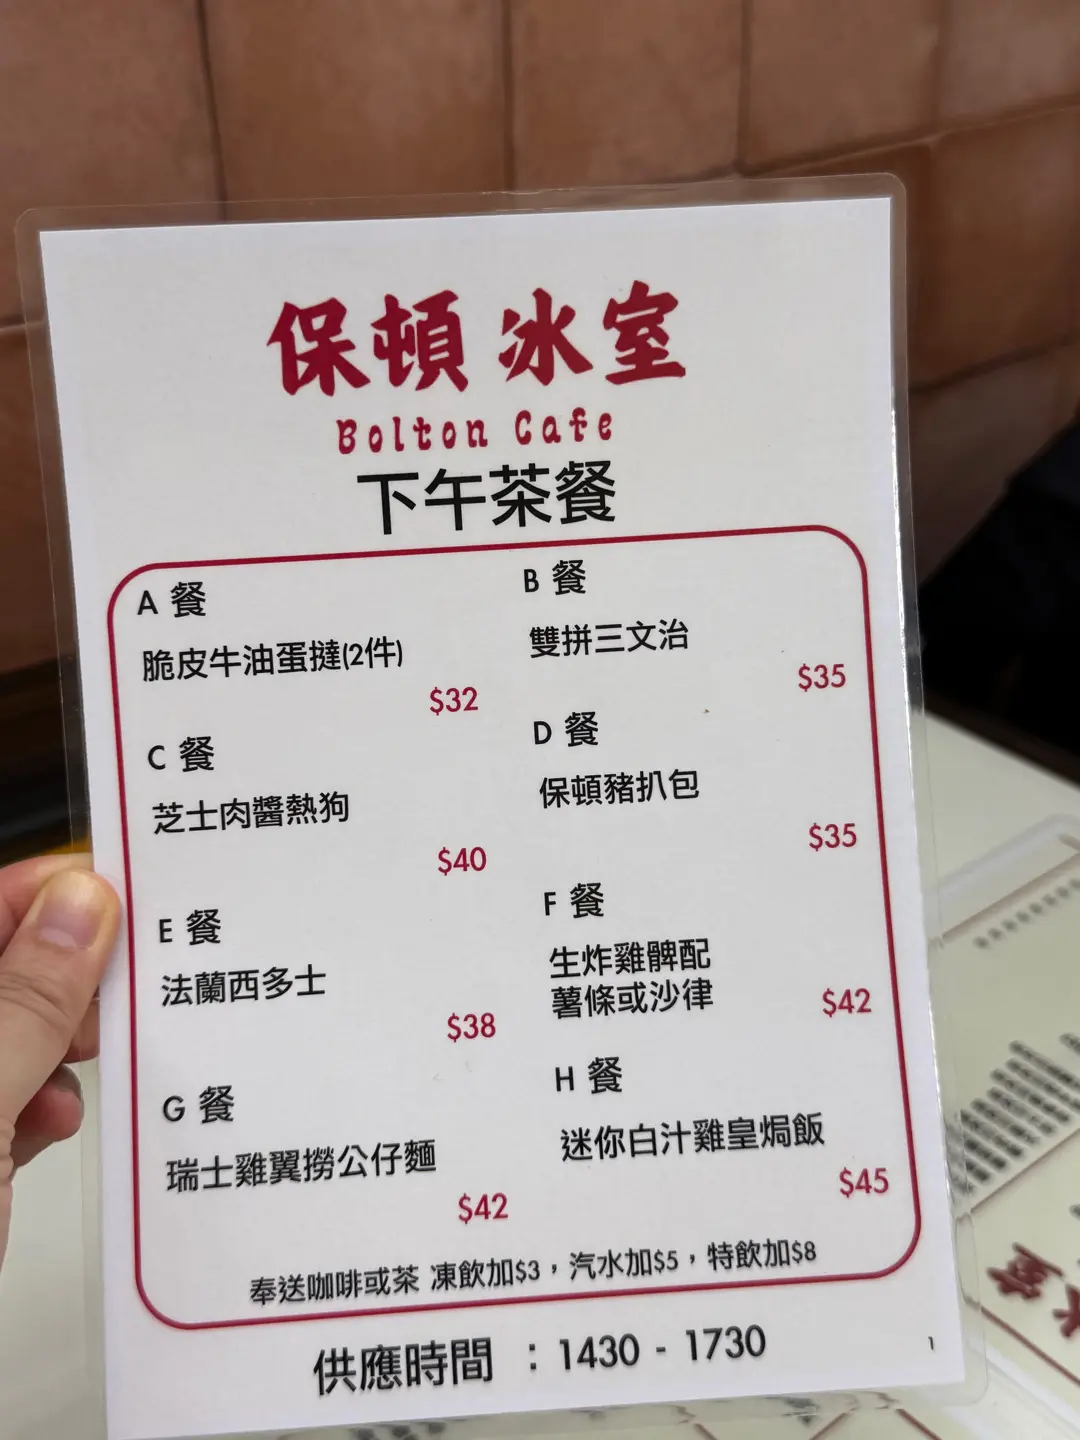 保頓冰室
Bolton Cafe
下午茶餐
A 餐
脆皮牛油蛋撻(2件)
$32
B 餐
雙拼三文治
$35
C 餐
芝士肉醬熱狗
$40
D 餐
保頓豬扒包
$35
E 餐
法蘭西多士
$38
F 餐
生炸雞髀配
薯條或沙律
$42
G 餐
瑞士雞翼撈公仔麵
$42
H 餐
迷你白汁雞皇焗飯
$45
奉送咖啡或茶 凍飲加$3，汽水加$5，特飲加$8
供應時間 ：1430 - 1730
1